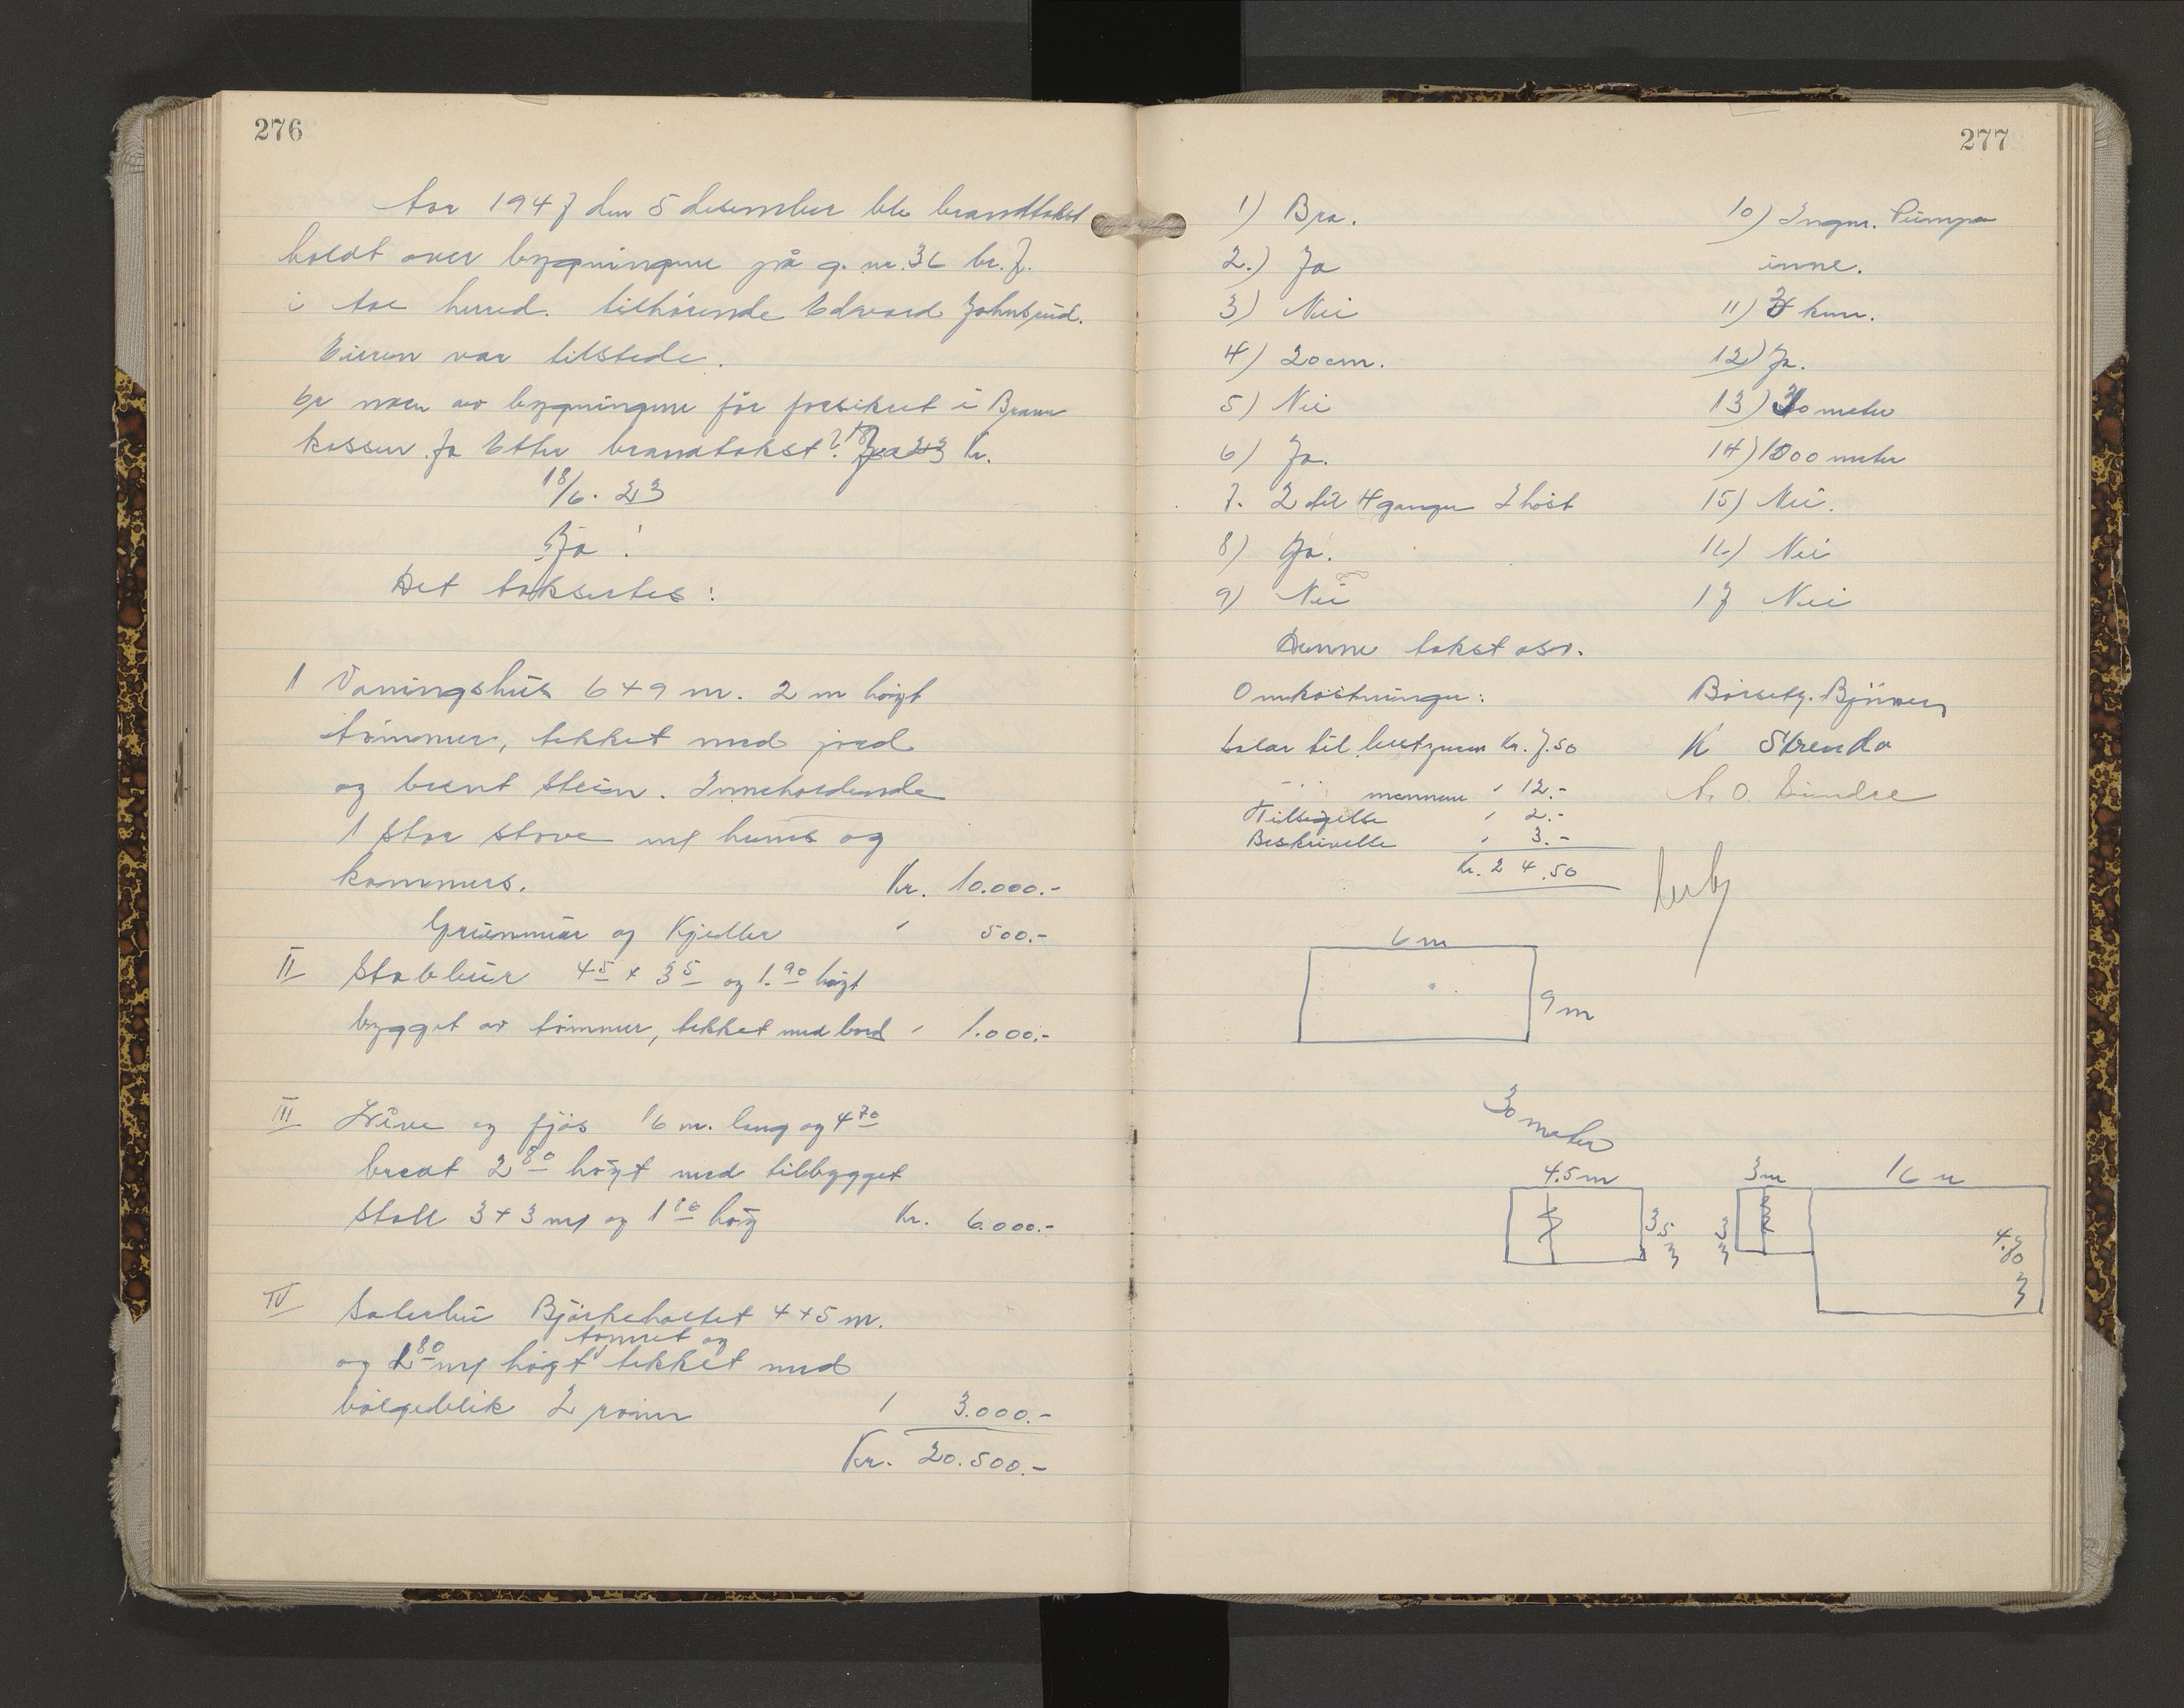 276
Aar 1947 den 5 desember ble brandtakst
holdt over bygningene på g. nr. 36 br. 7.
i herred. tilhørende Edvard Johnsrud.
Eieren var tilstede.
Er noen av bygningene før forsikret i Brann
kassen. Ja Etter brandtakst? Kr.
18/6. 23
Ja!
Det taksertes:
I Vaningshus 6+9 m. 2 m høigt
tømmer, tekket med jord
og brent stein. Inneholdende
1 stor stove m/ hems og
kammers. Kr. 10.000.-
Grunnmur og Kjeller " 500.-
II Stabbur 4 5 + 3 5 og 1. 90 høigt
bygget av tømmer, tekket med bord " 1.000.-
III Låve og fjøs 16 m. lang og 4 70
bredt 2 80 høigt med tilbygget
Stall 3+3 m/ og 1 80 høig Kr. 6.000.-
IV Saterbu Björkeholtet 4+5 m.
tømret og
og 1 80 m/ høgt tekket med
bølgeblik 2 rom " 3.000.-
Kr. 20.500.-
277
1) Bra.
2.) Ja
3) Nei
4) 20 cm.
5) Nei
6) Ja.
7. 2 til 4 ganger I høst
8) Ja.
9) Nei
10) Ingen. Pumpa
inne.
11) 3 km.
12) Ja.
13) 30 meter
14) 1500 meter
15) Nei.
16) Nei
17 Nei
Denne takst osv.
Omkostninger:
Salar til bestyreren Kr. 7.50
" mennene " 12.-
Tilsigelse " 2.-
Beskrivelse " 3.-
Kr. 24.50
K Strenda
A. O.
6 m
9 m
30 meter
4.5 m
3.5 m
3 m
3 m
16 m
4.70 m